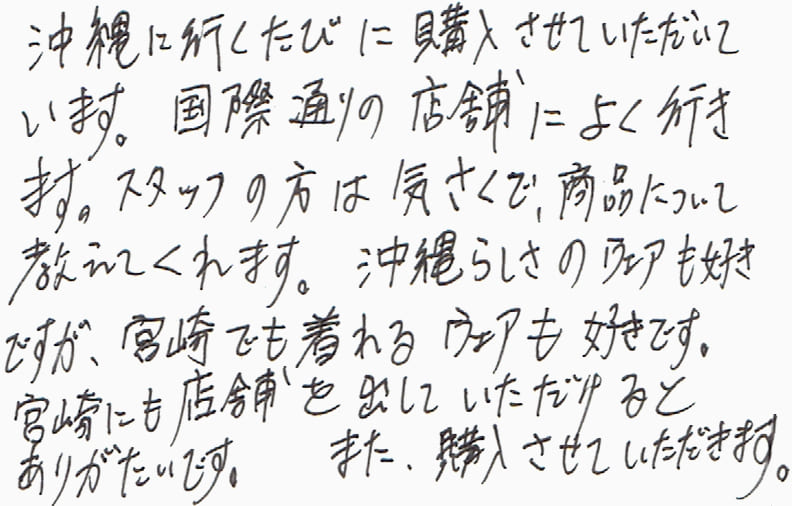 沖縄に行くたびに購入させていただいて
います。国際通りの店舗によく行き
ます。スタッフの方は気さくで、商品について
教えてくれます。沖縄らしさのウェアも好き
ですが、宮崎でも着れるウェアも好きです。
宮崎にも店舗を出していただけると
ありがたいです。　また、購入させていただきます。